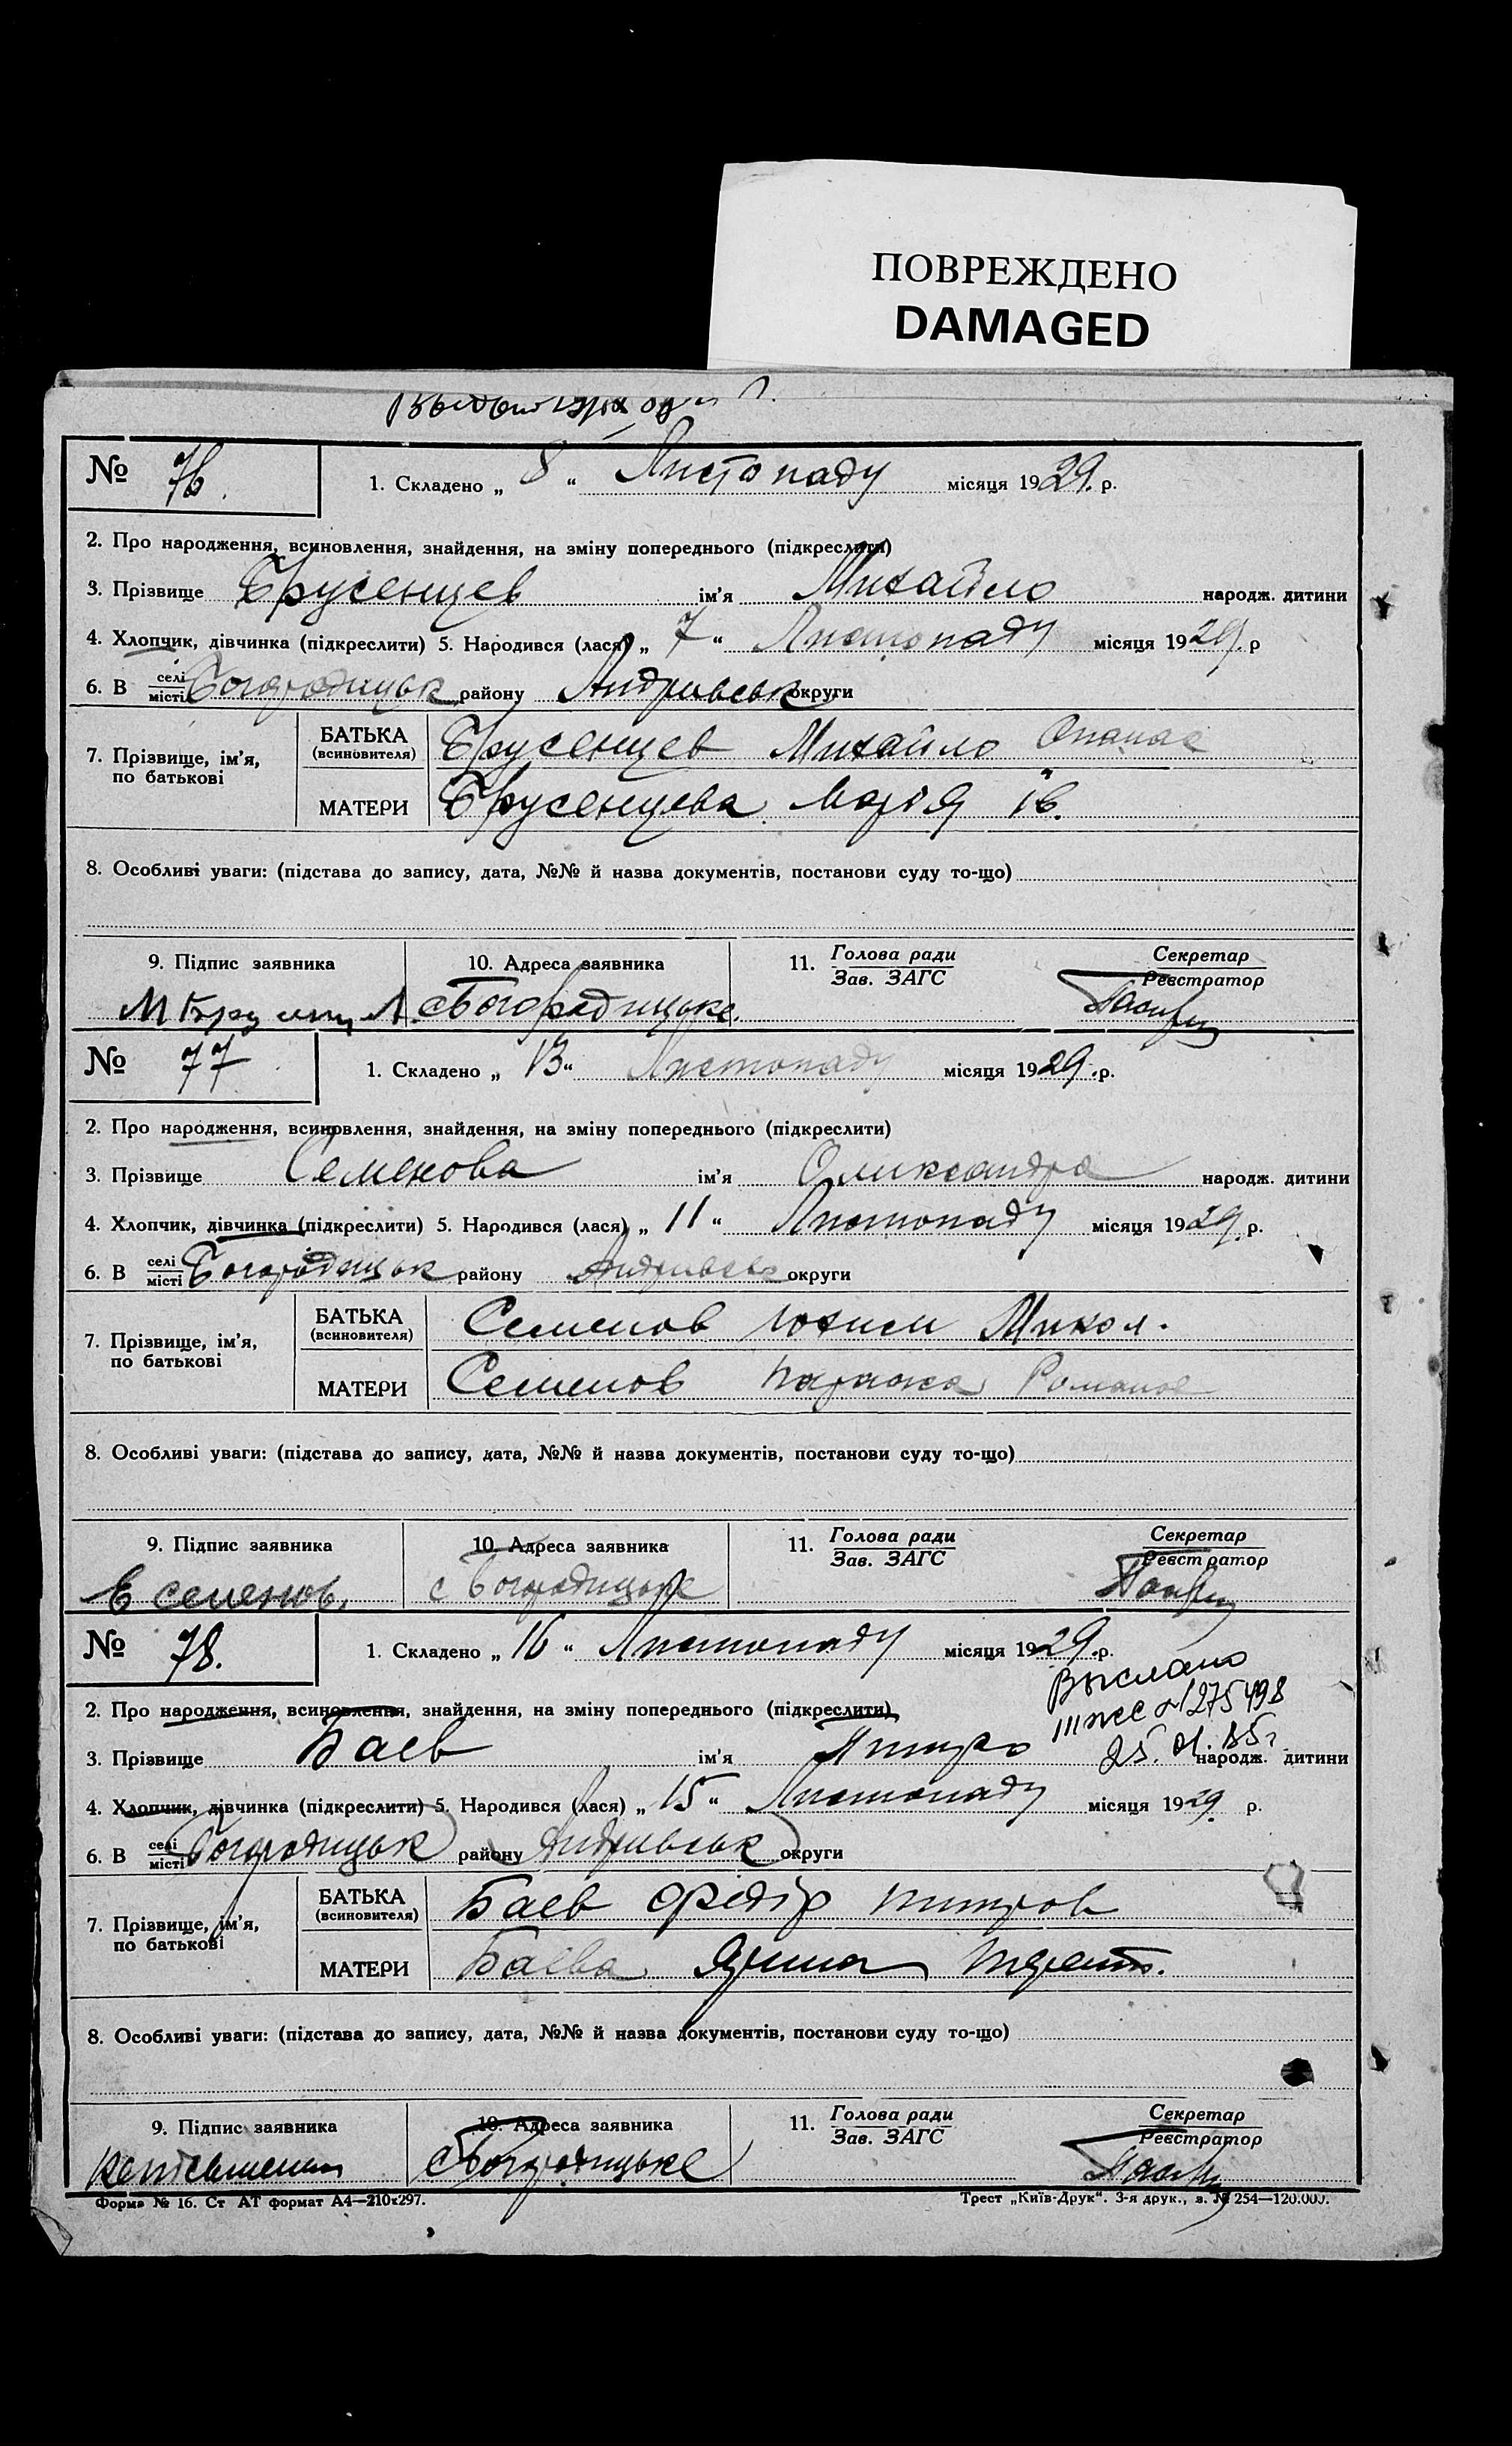 ПОВРЕЖДЕНО
DAMAGED
№ 76.
1. Складено „ 8 “ Листопаду місяця 1929. р.
2. Про народження, всиновлення, знайдення, на зміну попереднього (підкреслити)
3. Прізвище Брусенцев ім'я Михайло народж. дитини
4. Хлопчик, дівчинка (підкреслити) 5. Народився (лася) „ 7 “ Листопаду місяця 1929. р
6. В селі місті Богородицьк району Андриівськ округи
7. Прізвище, ім'я, по батькові
БАТЬКА (всиновителя) Брусенцев Михайло Опанас
МАТЕРИ Брусенцева Марія Ів.
8. Особливі уваги: (підстава до запису, дата, №№ й назва документів, постанови суду то-що)
9. Підпис заявника 10. Адреса заявника 11. Голова ради Зав. ЗАГС Секретар Реєстратор
с Богородицьке.
№ 77
1. Складено „ 13 “ Листопаду місяця 1929. р.
2. Про народження, всиновлення, знайдення, на зміну попереднього (підкреслити)
3. Прізвище Семенова ім'я Олександра народж. дитини
4. Хлопчик, дівчинка (підкреслити) 5. Народився (лася) „ 11 “ Листопаду місяця 1929. р.
6. В селі місті Богородицьк району Андриівськ округи
7. Прізвище, ім'я, по батькові
БАТЬКА (всиновителя) Семенов Юхим Микол.
МАТЕРИ Семенов Параска Романов
8. Особливі уваги: (підстава до запису, дата, №№ й назва документів, постанови суду то-що)
9. Підпис заявника 10. Адреса заявника 11. Голова ради Зав. ЗАГС Секретар Реєстратор
Е семенов. с Богородицьке
№ 78.
1. Складено „ 16 “ Листопаду місяця 1929. р.
Выслано
2. Про народження, всиновлення, знайдення, на зміну попереднього (підкреслити)
№ 275498
3. Прізвище Баев ім'я Дмитро народж. дитини
4. Хлопчик, дівчинка (підкреслити) 5. Народився (лася) „ 15 “ Листопаду місяця 1929. р.
6. В селі місті Богородицьк району Андриівськ округи
7. Прізвище, ім'я, по батькові
БАТЬКА (всиновителя) Баев Федір Дмитров
МАТЕРИ Баева Ярина Терент.
8. Особливі уваги: (підстава до запису, дата, №№ й назва документів, постанови суду то-що)
9. Підпис заявника 10. Адреса заявника 11. Голова ради Зав. ЗАГС Секретар Реєстратор
с Богородицьке
Форма № 16. Ст АТ формат А4—210х297. Трест „Київ-Друк“. 3-я друк., з. № 254—120.000.